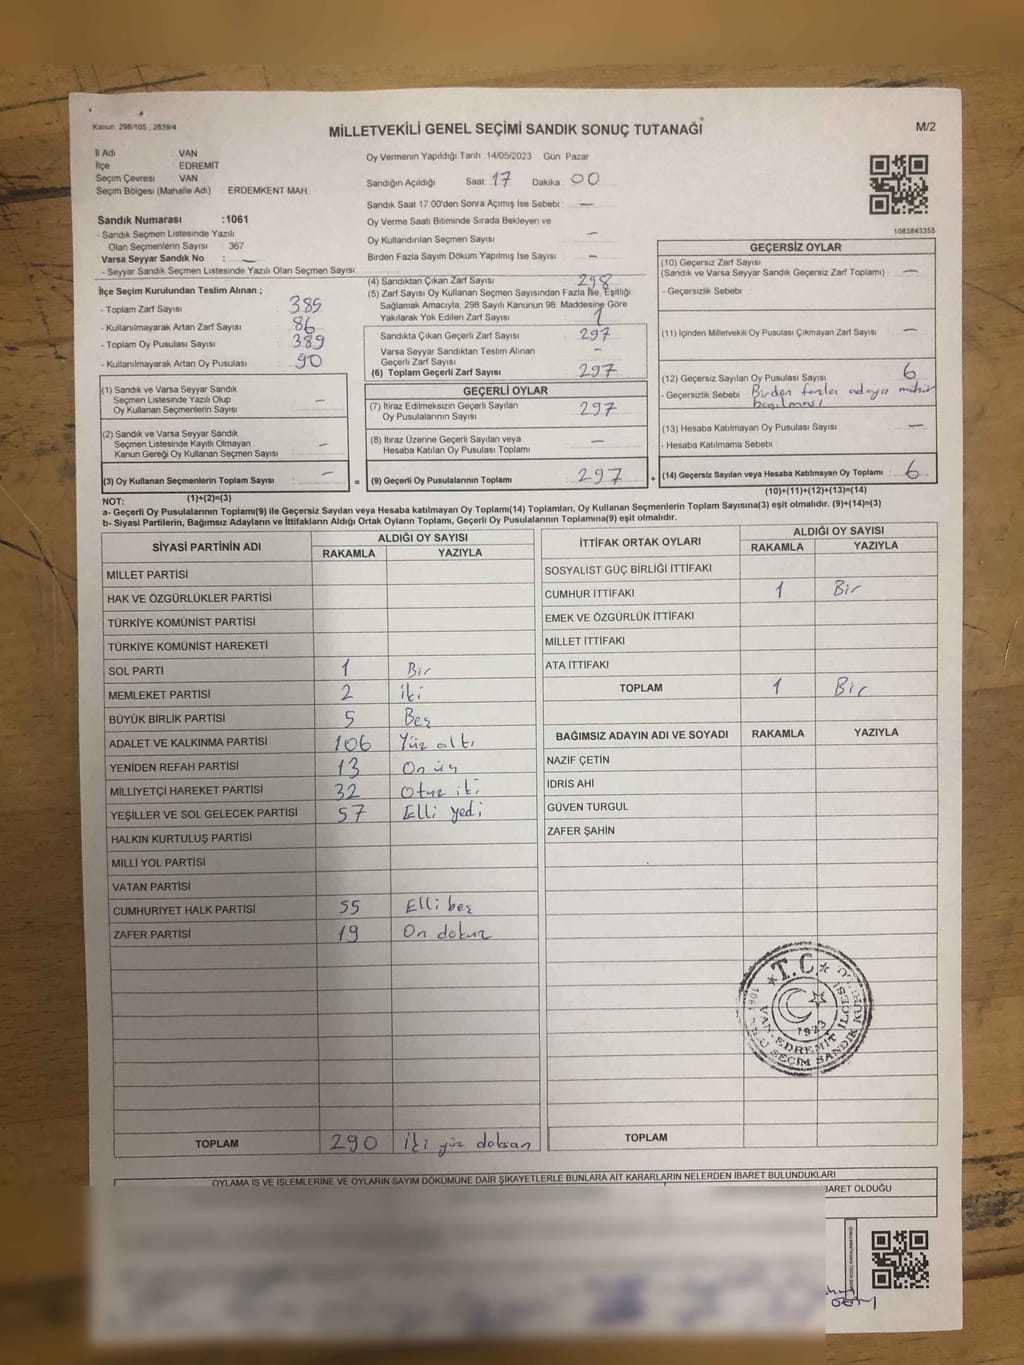 Kanun, 298/105 , 2839/4
MİLLETVEKİLİ GENEL SEÇİMİ SANDIK SONUÇ TUTANAĞI
M/2
İl Adı VAN
İlçe EDREMİT
Seçim Çevresi VAN
Seçim Bölgesi (Mahalle Adı) ERDEMKENT MAH.
Oy Vermenin Yapıldığı Tarih 14/05/2023 Gün Pazar
Sandığın Açıldığı Saat 17 Dakika 00
Sandık Saat 17:00'den Sonra Açımış İse Sebebi : —
Oy Verme Saati Bitiminde Sırada Bekleyen ve
Oy Kullandırılan Seçmen Sayısı —
Birden Fazla Sayım Döküm Yapılmış İse Sayısı : —
1083843355
Sandık Numarası :1061
- Sandık Seçmen Listesinde Yazılı
Olan Seçmenlerin Sayısı 367
Varsa Seyyar Sandık No : —
- Seyyar Sandık Seçmen Listesinde Yazılı Olan Seçmen Sayısı
İlçe Seçim Kurulundan Teslim Alınan ;
- Toplam Zarf Sayısı 389
- Kullanılmayarak Artan Zarf Sayısı 86
- Toplam Oy Pusulası Sayısı 389
- Kullanılmayarak Artan Oy Pusulası 90
(1) Sandık ve Varsa Seyyar Sandık
Seçmen Listesinde Yazılı Olup
Oy Kullanan Seçmenlerin Sayısı —
(2) Sandık ve Varsa Seyyar Sandık
Seçmen Listesinde Kayıtlı Olmayan
Kanun Gereği Oy Kullanan Seçmen Sayısı —
(3) Oy Kullanan Seçmenlerin Toplam Sayısı —
(1)+(2)=(3)
(4) Sandıktan Çıkan Zarf Sayısı 298
(5) Zarf Sayısı Oy Kullanan Seçmen Sayısından Fazla İse, Eşitliği
Sağlamak Amacıyla, 298 Sayılı Kanunun 98. Maddesine Göre
Yakılarak Yok Edilen Zarf Sayısı 1
Sandıkta Çıkan Geçerli Zarf Sayısı 297
Varsa Seyyar Sandıktan Teslim Alınan
Geçerli Zarf Sayısı —
(6) Toplam Geçerli Zarf Sayısı 297
GEÇERLİ OYLAR
(7) İtiraz Edilmeksizin Geçerli Sayılan
Oy Pusulalarının Sayısı 297
(8) İtiraz Üzerine Geçerli Sayılan veya
Hesaba Katılan Oy Pusulası Toplamı —
= (9) Geçerli Oy Pusulalarının Toplamı 297 +
GEÇERSİZ OYLAR
(10) Geçersiz Zarf Sayısı
(Sandık ve Varsa Seyyar Sandık Geçersiz Zarf Toplamı) —
- Geçersizlik Sebebi :
(11) İçinden Milletvekili Oy Pusulası Çıkmayan Zarf Sayısı —
(12) Geçersiz Sayılan Oy Pusulası Sayısı 6
- Geçersizlik Sebebi Birden fazla adaya mühür
basılması
(13) Hesaba Katılmayan Oy Pusulası Sayısı —
- Hesaba Katılmama Sebebi :
(14) Geçersiz Sayılan veya Hesaba Katılmayan Oy Toplamı 6
(10)+(11)+(12)+(13)=(14)
NOT:
a- Geçerli Oy Pusulalarının Toplamı(9) ile Geçersiz Sayılan veya Hesaba Katılmayan Oy Toplamı(14) Toplamları, Oy Kullanan Seçmenlerin Toplam Sayısına(3) eşit olmalıdır. (9)+(14)=(3)
b- Siyasi Partilerin, Bağımsız Adayların ve İttifakların Aldığı Ortak Oyların Toplamı, Geçerli Oy Pusulalarının Toplamına(9) eşit olmalıdır.
SİYASİ PARTİNİN ADI ALDIĞI OY SAYISI
RAKAMLA YAZIYLA
MİLLET PARTİSİ
HAK VE ÖZGÜRLÜKLER PARTİSİ
TÜRKİYE KOMÜNİST PARTİSİ
TÜRKİYE KOMÜNİST HAREKETİ
SOL PARTİ 1 Bir
MEMLEKET PARTİSİ 2 İki
BÜYÜK BİRLİK PARTİSİ 5 Beş
ADALET VE KALKINMA PARTİSİ 106 Yüz altı
YENİDEN REFAH PARTİSİ 13 On üç
MİLLİYETÇİ HAREKET PARTİSİ 32 Otuz iki
YEŞİLLER VE SOL GELECEK PARTİSİ 57 Elli yedi
HALKIN KURTULUŞ PARTİSİ
MİLLİ YOL PARTİSİ
VATAN PARTİSİ
CUMHURİYET HALK PARTİSİ 55 Elli beş
ZAFER PARTİSİ 19 On dokuz
TOPLAM 290 İki yüz doksan
İTTİFAK ORTAK OYLARI ALDIĞI OY SAYISI
RAKAMLA YAZIYLA
SOSYALİST GÜÇ BİRLİĞİ İTTİFAKI
CUMHUR İTTİFAKI 1 Bir
EMEK VE ÖZGÜRLÜK İTTİFAKI
MİLLET İTTİFAKI
ATA İTTİFAKI
TOPLAM 1 Bir
BAĞIMSIZ ADAYIN ADI VE SOYADI RAKAMLA YAZIYLA
NAZİF ÇETİN
İDRİS AHİ
GÜVEN TURGUL
ZAFER ŞAHİN
T.C.
1923
VAN-EDREMİT İLÇESİ
SEÇİM SANDIK KURULU
TOPLAM
OYLAMA İŞ VE İŞLEMLERİNE VE OYLARIN SAYIM DÖKÜMÜNE DAİR ŞİKAYETLERLE BUNLARA AİT KARARLARIN NELERDEN İBARET BULUNDUKLARI
BARET OLDUĞU